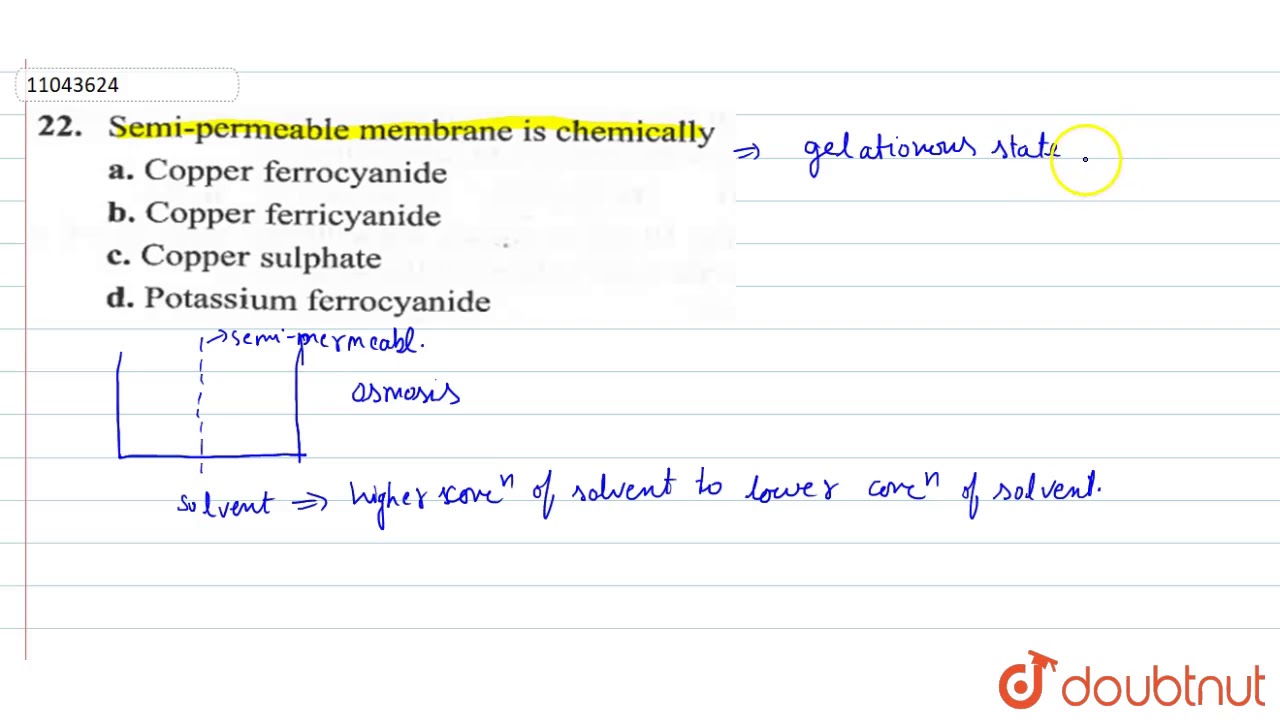 11043624
22. Semi-permeable membrane is chemically
a. Copper ferrocyanide
b. Copper ferricyanide
c. Copper sulphate
d. Potassium ferrocyanide
⇒ gelationous state
→ semi-permeabl.
osmosis
solvent ⇒ higher conc^n of solvent to lower conc^n of solvent.
doubtnut